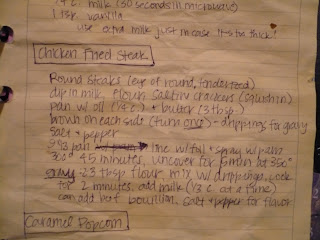 c. milk (30 seconds in microwave)
1 tsp vanilla
use extra milk just in case its too thick!
Chicken Fried Steak
Round steaks (eye of round, tenderized)
dip in milk, flour, Saltin crackers (squishin)
pan w/ oil (1/4 c) + butter (3 tbsp)
brown on each side (turn once) - drippings for gravy
salt + pepper
9x13 pan line w/ foil + spray w/ pam
350° 45 minutes, uncover for 5 min at 350°
gravy - 2-3 tbsp flour mix w/ drippings, cook
for 2 minutes. add milk (1/3 c at a time)
can add beef bouillon. Salt + pepper for flavor
Caramel Popcorn